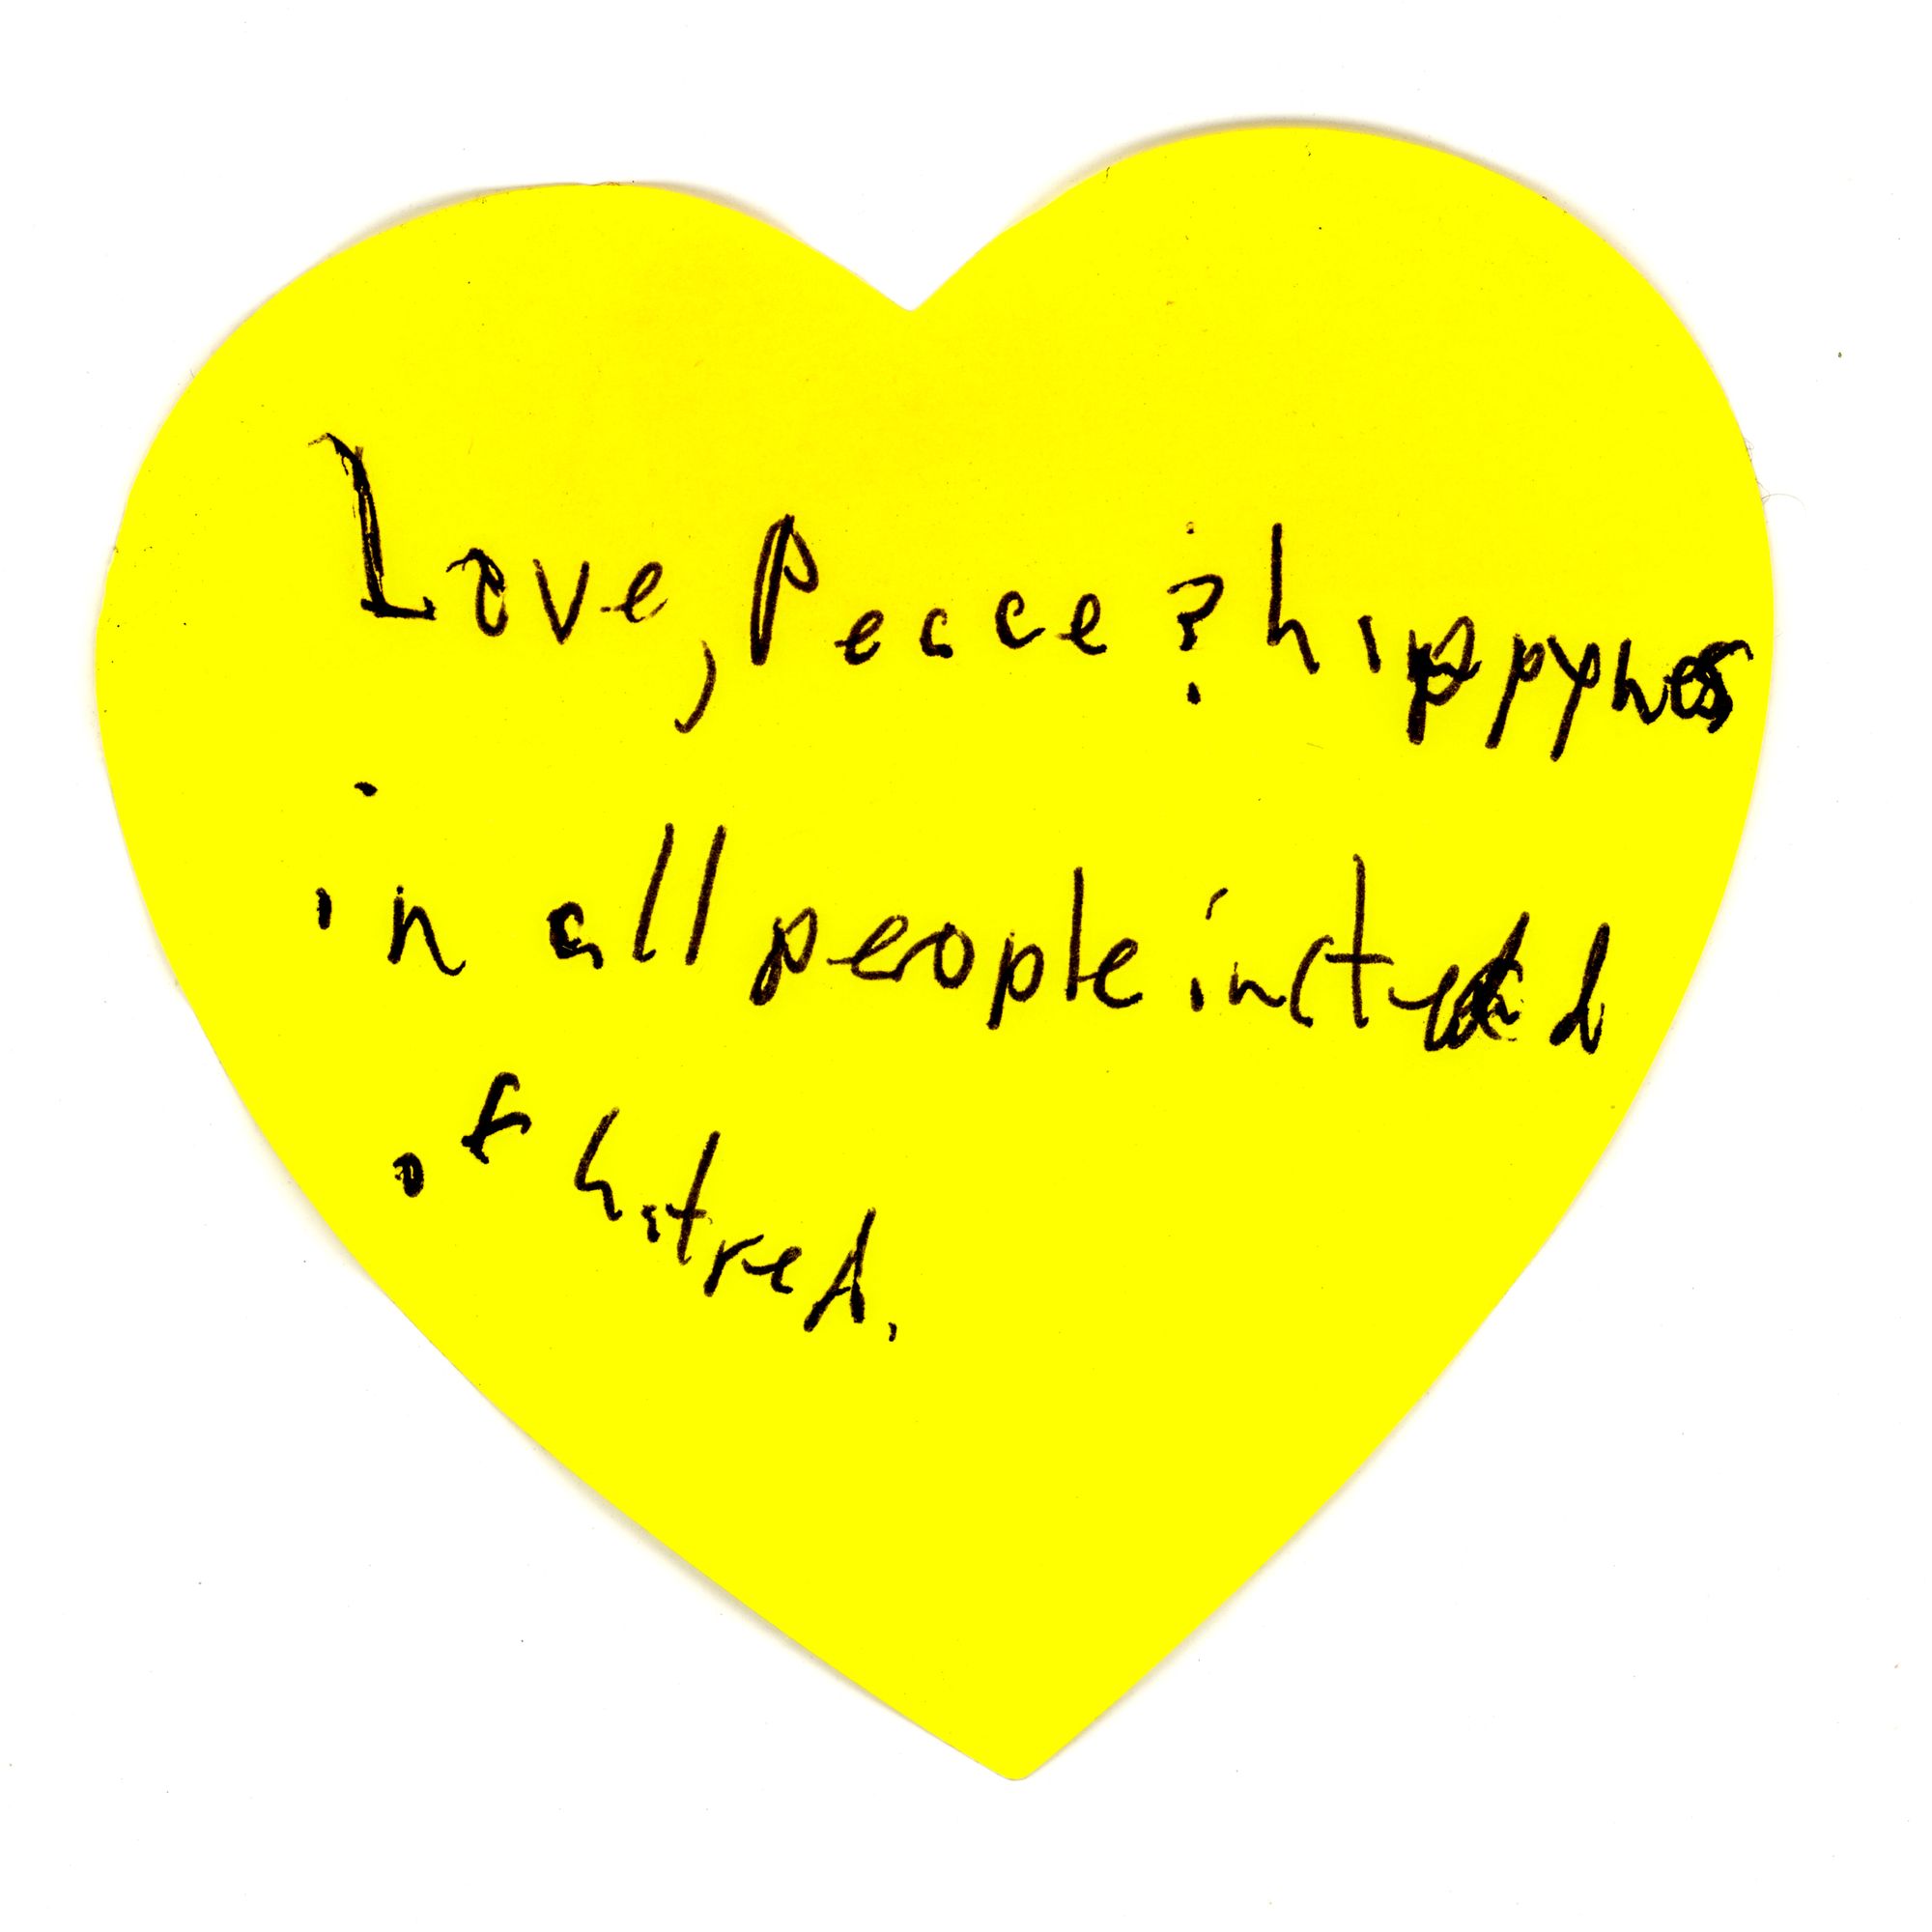 Love, Peace & happynes
in all people instead
of hatred.